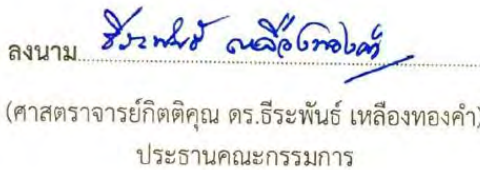 ลงนาม ธีระพันธ์ เหลืองทองคำ
(ศาสตราจารย์กิตติคุณ ดร.ธีระพันธ์ เหลืองทองคำ)
ประธานคณะกรรมการ